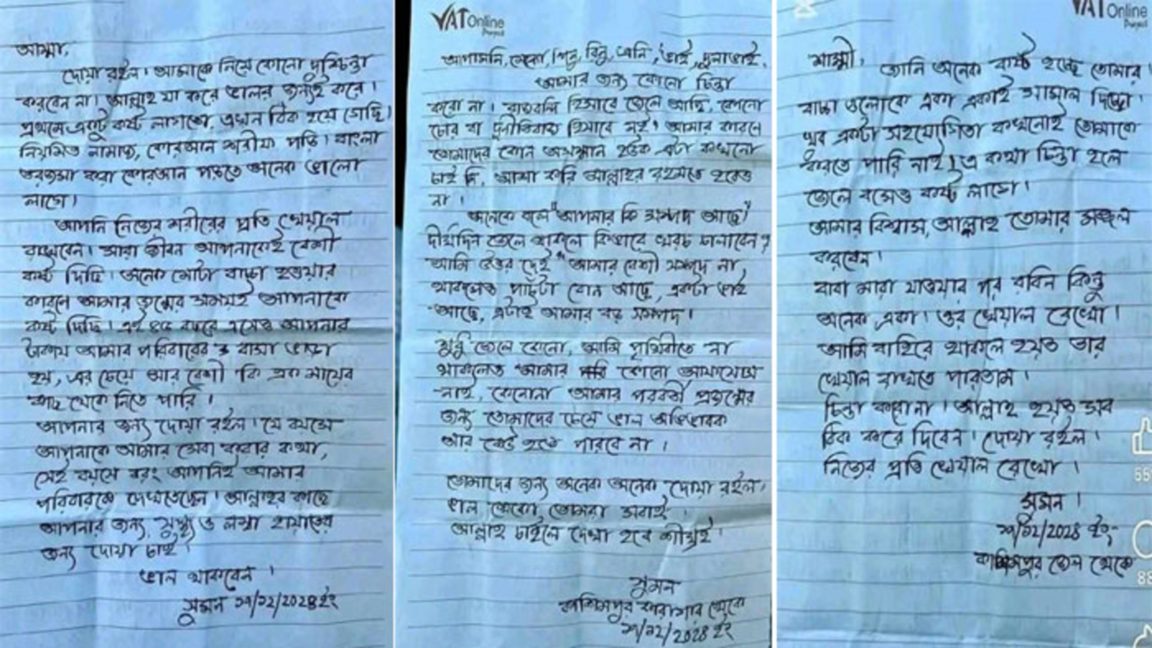 আম্মা,
দোয়া রইল। আমাকে নিয়ে কোনো দুশ্চিন্তা
করবেন না। আল্লাহ যা করে ভালর জন্যই করে।
প্রথমে একটু কষ্ট লাগতো, এখন ঠিক হয়ে গেছি।
নিয়মিত নামাজ, কোরআন শরীফ পড়ি। বাংলা
তরজমা করা কোরআন পড়তে অনেক ভালো
লাগে।
আপনি নিজের শরীরের প্রতি খেয়াল
রাখবেন। সারা জীবন আপনাকেই বেশী
কষ্ট দিছি। অনেক মোটা বাচ্চা হওয়ার
কারনে আমার জন্মের সময়ই আপনাকে
কষ্ট দিছি। এই বছরে এসেও আপনার
টাকায় আমার পরিবারের বাসা ভাড়া
হয়, এর চেয়ে আর বেশী কি এক মায়ের
কাছ থেকে নিতে পারি।
আপনার জন্য দোয়া রইল। যে বয়সে
আপনাকে আমার সেবা করার কথা,
সেই বয়সে বরং আপনিই আমার
পরিবারকে দেখতেছেন। আল্লাহর কাছে
আপনার জন্য, সুস্থ্য ও লম্বা হায়াতের
জন্য দোয়া চাই।
ভাল থাকবেন।
সুমন ২৭/১২/২০২৪ ইং
VAT Online
Project
আপামনি, মেকো, পিনু, বিনু, এনি, ভাই, দুলাভাই,
আমার জন্য কোনো চিন্তা
করো না। রাজবন্দি হিসাবে জেলে আছি, কোনো
চোর বা দুর্নীতিবাজ হিসাবে নই। আমার কারনে
তোমাদের কোন অসম্মান হউক এটা কখনো
চাই নি, আশা করি আল্লাহর রহমতে হবেও
না।
অনেকে বলে "আপনার কি সম্পদ আছে?
দীর্ঘদিন জেলে থাকলে কিভাবে খরচ চালাবেন?
আমি উত্তর দেই "আমার বেশী সম্পদ না
থাকলেও পাঁচটা বোন আছে, একটা ভাই
আছে, এটাই আমার বড় সম্পদ।
শুধু জেনে রেখো, আমি পৃথিবীতে না
থাকলেও আমার কোনো আফসোস
নাই, কেনোনা আমার পরবর্তী প্রজন্মের
জন্য তোমাদের চেয়ে ভাল অভিভাবক
আর কেউ হতে পারবে না।
তোমাদের জন্য অনেক অনেক দোয়া রইল।
ভাল থেকো তোমরা সবাই।
আল্লাহ চাইলে দেখা হবে শীঘ্রই।
সুমন
কাশিমপুর কারাগার থেকে
২৭/১২/২০২৪ ইং
VAT Online
Project
শাম্মী, জানি অনেক কষ্ট হচ্ছে তোমার।
বাচ্চা গুলোকে একা একাই সামাল দিচ্ছো।
খুব একটা সহযোগিতা কখনোই তোমাকে
করতে পারি নাই। এ কথা চিন্তা হলে
জেলে বসেও কষ্ট লাগে।
আমার বিশ্বাস, আল্লাহ তোমার মঙ্গল
করবেন।
বাবা মারা যাওয়ার পর রবিন কিন্তু
অনেক একা। ওর খেয়াল রেখো।
আমি বাহিরে থাকলে হয়ত তার
খেয়াল রাখতে পারতাম।
চিন্তা করোনা। আল্লাহ হয়ত সব
ঠিক করে দিবেন। দোয়া রইল।
নিজের প্রতি খেয়াল রেখো।
সুমন।
২৭/১২/২০২৪ ইং
কাশিমপুর জেল থেকে